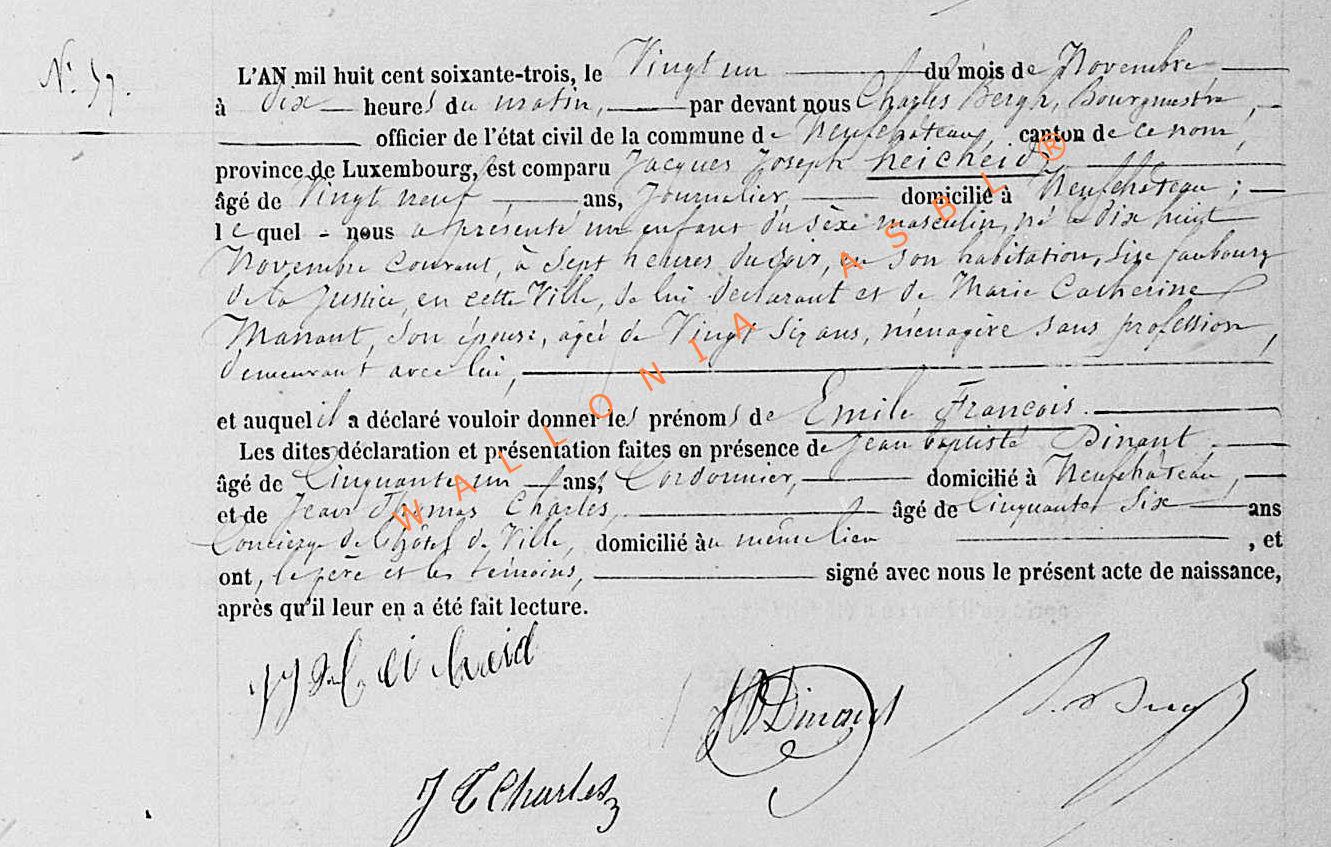 N° 57.
L'AN mil huit cent soixante-trois, le Vingt un du mois de Novembre,
à dix heures du matin, par devant nous Charles Bergh, Bourgmestre,
officier de l'état civil de la commune de Neufchâteau, canton de ce nom,
province de Luxembourg, est comparu Jacques Joseph
âgé de Vingt neuf ans, Journalier, domicilié à Neufchâteau ;
lequel nous a présenté un enfant du sèxe masculin, né le dix huit
Novembre courant, à sept heures du soir, en son habitation, sise faubourg
de la Justice, en cette Ville, de lui déclarant et de Marie Catherine
son épouse, agée de Vingt six ans, ménagère sans profession,
demeurant avec lui,
et auquel il a déclaré vouloir donner les prénoms de Emile François.
Les dites déclaration et présentation faites en présence de Jean baptiste Dinant,
âgé de Cinquante un ans, Cordonnier, domicilié à Neufchâteau,
et de Jean Thomas Charles, âgé de Cinquante Six ans
Concierge de l'hôtel de Ville, domicilié au même lieu , et
ont, le père et les témoins, signé avec nous le présent acte de naissance,
après qu'il leur en a été fait lecture.
JB Dinant
J T Charles
WALLONIA ASBL ®